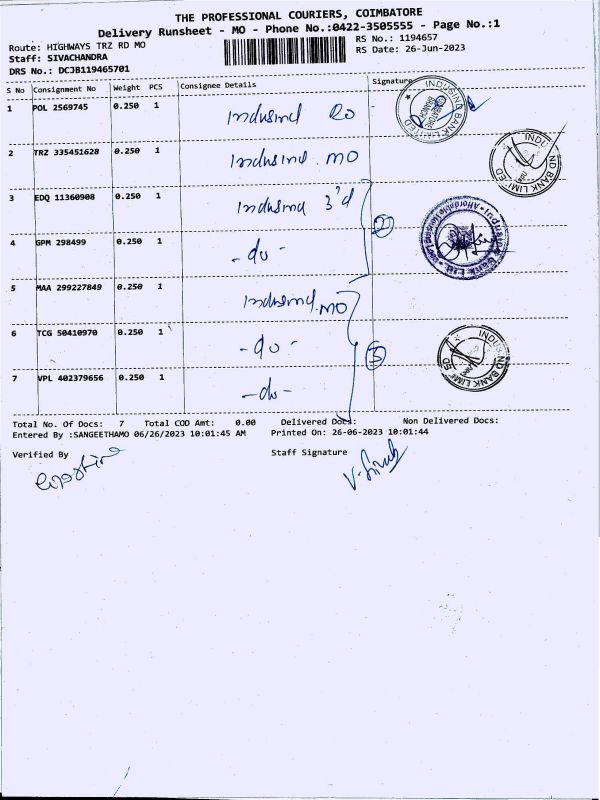 THE PROFESSIONAL COURIERS, COIMBATORE
Delivery Runsheet - MO - Phone No.:0422-3505555 - Page No.:1
Route: HIGHWAYS TRZ RD MO
RS No.: 1194657
Staff: SIVACHANDRA
RS Date: 26-Jun-2023
DRS No.: DCJB119465701
S No Consignment No Weight PCS Consignee Details Signature
1 POL 2569745 0.250 1 Indusind RO
INDUSIND BANK LIMITED
COIMBATORE BRANCH
2 TRZ 335451628 0.250 1 Indusind MO
INDUSIND BANK LIMITED
3 EDQ 11360908 0.250 1 Indusind 3'd
2
IndusInd Bank Ltd.
Affordable Housing
4 GPM 298499 0.250 1 - do -
5 MAA 299227849 0.250 1 Indusind MO
6 TCG 50410970 0.250 1 - do -
3
INDUSIND BANK LIMITED
7 VPL 402379656 0.250 1 - do -
Total No. Of Docs: 7 Total COD Amt: 0.00 Delivered Docs: Non Delivered Docs:
Entered By :SANGEETHAMO 06/26/2023 10:01:45 AM Printed On: 26-06-2023 10:01:44
Verified By Staff Signature